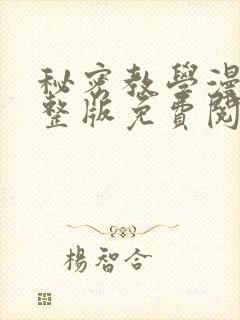 秘密教學漫
整版免費閱
楊智合